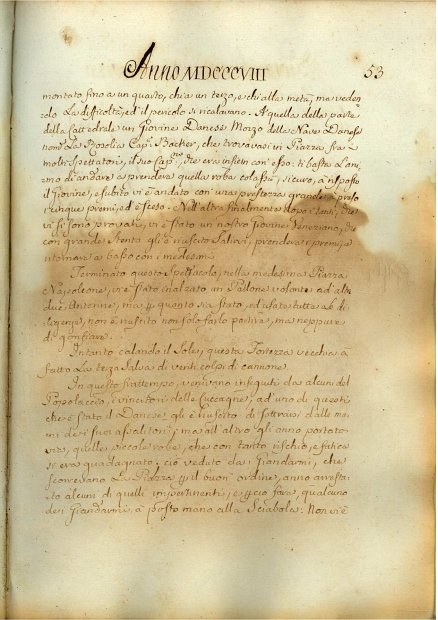 Anno MDCCCVIII
53
montato fino a un quarto, chi a un terzo, e chi alla metà, ma veden
do la difficoltà, ed il pericolo si ricalavano. A quella della parte
della Cattedrale un Giovine Danese Mozo della Nave Danese
nomta La Rosolia Capn Backer, che trovavasi in Piazza, fra
molti Spettatori, il suo Capno, che era insiem con esso: ti basta l'ani
mo di andare a prendere quella roba colassù; sicuro, à risposto
il Giovine, e subito vi è andato con una prestezza grande, à preso
cinque premi, ed è sceso. Nell'altra finalmente dopo tanti, che
vi si sono provati, vi è stato un nostro Giovine Veneziano, che
con grande stento gli è riuscito salirvi, prendere i premi, e
ritornare a basso con i medesimi.
Terminato questo Spettacolo, nella medesima Piazza
Napoleone, vi è stato inalzato un Pallone volante ad alte
due Antenne, ma quanto sia stato, ed usata tutta la di
ligenza, non è riuscito non solo farlo partire, ma neppure
di gonfiare.
Intanto calando il Sole, questa Fortezza vecchia à
fatto la terza Salva di venti colpi di cannone.
In questo frattempo, venivano inseguiti da alcuni del
Popolaccio, i vincitori delle Cuccagne; ad uno di questi
che è stato il Danese gli è riuscito di sottrarsi dalle ma
ni de i suoi assalitori; ma all'altro gli anno portato
via, quelle piccole robe, che con tanto rischio, e fatica
si era guadagnato; ciò veduto da i Giandarmi, che
scorrevano la Piazza il buon ordine, anno arresta
to alcuni di quelli impertinenti, e ciò fare, qualcuno
de i Giandarmi, à posto mano alla Sciabola. Non vi è